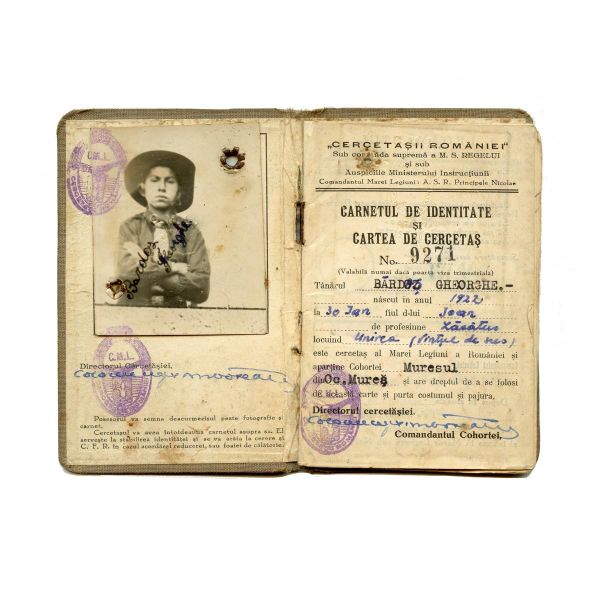 C.M.L.
Bardoș
Gheorghe
C.M.L.
Directorul Cercetășiei,
Posesorul va semna deacurmezișul peste fotografie și
carnet.
Cercetașul va avea întotdeauna carnetul asupra sa. El
servește la stabilirea identității și se va arăta la cerere și
C. F. R. în cazul acordărei reducerei, sau foaiei de călătorie.
„CERCETAȘII ROMÂNIEI"
Sub comanda supremă a M. S. REGELUI
și sub
Auspiciile Ministerului Instrucțiunii
Comandantul Marei Legiuni: A. S. R. Principele Nicolae
CARNETUL DE IDENTITATE
ȘI
CARTEA DE CERCETAȘ
No. 9271
(Valabilă numai dacă poartă viza trimestrială)
Tânărul BÂRDOȘ GHEORGHE.-
născut în anul 1922
la 30 Ian. fiul d-lui Ioan
de profesiune
locuind Unirea
este cercetaș al Marei Legiuni a României și
aparține Cohortei Muresul
din Oc.Mureș și are dreptul de a se folosi
de această carte și purta costumul și pajura,
Directorul cercetășiei.
Comandantul Cohortei,